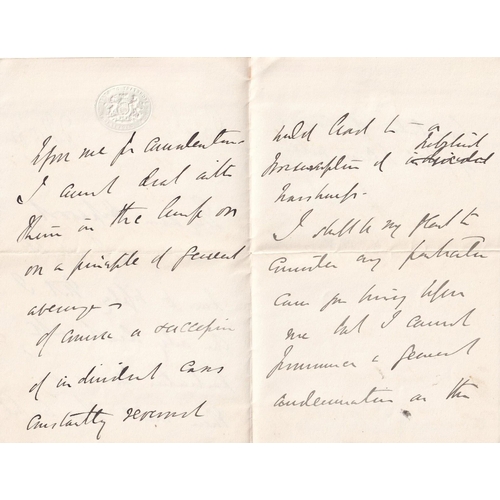 upon me for consideration
I cannot deal with
them in the lump or
on a principle of general
average
of course a succession
of individual cases
constantly reversed
would lead to a
of
I shall be very glad to
consider any particular
case you bring before
me but I cannot
pronounce a general
condemnation on the